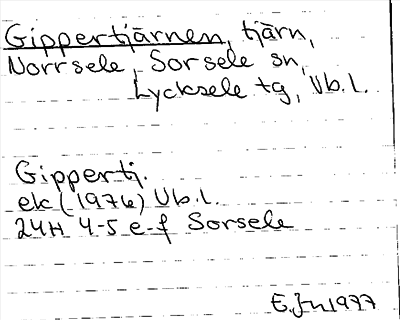 Gippertjärnen, tjärn,
Norrsele, Sorsele sn,
Lycksele tg, Vb.l.
Gippertj.
ek (1976) Vb.l.
24H 4-5 e-f Sorsele
E.Jn 1977